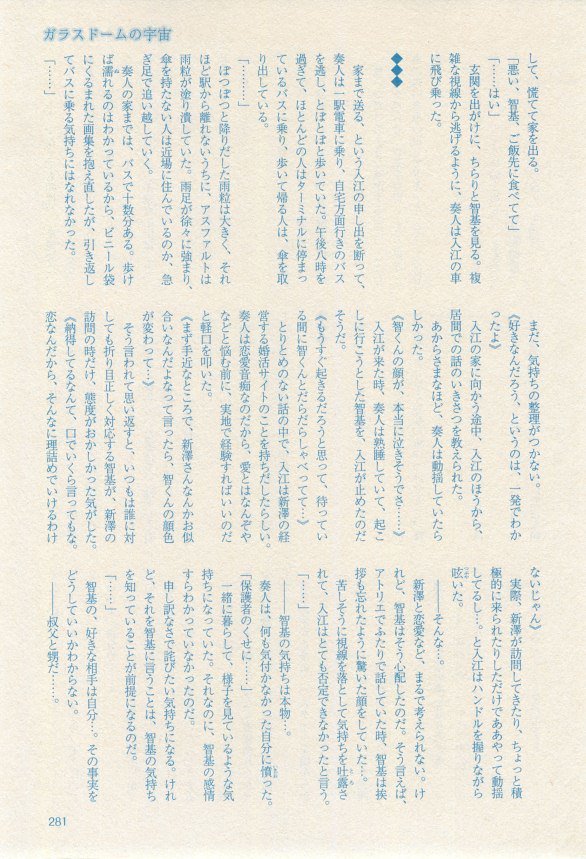 ガラスドームの宇宙
して、慌てて家を出る。
「悪い、智基、ご飯先に食べてて」
「……はい」
玄関を出がけに、ちらりと智基を見る。複
雑な視線から逃げるように、奏人は入江の車
に飛び乗った。
◆◆◆
家まで送る、という入江の申し出を断って、
奏人は一駅電車に乗り、自宅方面行きのバス
を逃し、とぼとぼと歩いていた。午後八時を
過ぎて、ほとんどの人はターミナルに停まっ
ているバスに乗り、歩いて帰る人は、傘を取
り出している。
「………」
ぽつぽつと降りだした雨粒は大きく、それ
ほど駅から離れないうちに、アスファルトは
雨粒が塗り潰していた。雨足が徐々に強まり、
傘を持たない人は近場に住んでいるのか、急
ぎ足で追い越していく。
奏人の家までは、バスで十数分ある。歩け
ば濡れるのはわかっているから、ビニール袋
にくるまれた画集を抱え直したが、引き返し
てバスに乗る気持ちにはなれなかった。
「……」
まだ、気持ちの整理がつかない。
《好きなんだろう、というのは、一発でわか
ったよ》
入江の家に向かう途中、入江のほうから、
居間での話のいきさつを教えられた。
あからさまなほど、奏人は動揺していたら
しかった。
《智くんの顔が、本当に泣きそうでさ……》
入江が来た時、奏人は熟睡していて、起こ
しに行こうとした智基を、入江が止めたのだ
そうだ。
《もうすぐ起きるだろうと思って、待ってい
る間に智くんとだらだらしゃべってて…》
とりとめのない話の中で、入江は新澤の経
営する婚活サイトのことを持ちだしたらしい。
奏人は恋愛音痴なのだから、愛とはなんぞや
などと悩む前に、実地で経験すればいいのだ
と軽口を叩いた。
《まず手近なところで、新澤さんなんかお似
合いなんだよなって言ったら、智くんの顔色
が変わって…》
そう言われて思い返すと、いつもは誰に対
しても折り目正しく対応する智基が、新澤の
訪問の時だけ、態度がおかしかった気がした。
《納得してるなんて、口でいくら言ってもな。
恋なんだから、そんなに理詰めでいけるわけ
ないじゃん》
実際、新澤が訪問してきたり、ちょっと積
極的に来られたりしただけでああやって動揺
してるし…。と入江はハンドルを握りながら
呟いた。
――そんな…。
新澤と恋愛など、まるで考えられない。け
れど、智基はそう心配したのだ。そう言えば、
アトリエでふたりで話していた時、智基は挨
拶も忘れたように驚いた顔をしていた…。
苦しそうに視線を落として気持ちを吐露さ
れて、入江はとても否定できなかったと言う。
「……」
――智基の気持ちは本物…。
奏人は、何も気付かなかった自分に憤った。
〝保護者のくせに……〟
一緒に暮らして、様子を見ているような気
持ちになっていた。それなのに、智基の感情
すらわかっていなかったのだ。
申し訳なさで詫びたい気持ちになる。けれ
ど、それを智基に言うことは、智基の気持ち
を知っていることが前提になるのだ。
「……」
智基の、好きな相手は自分…。その事実を
どうしていいかわからない。
――叔父と甥だ……。
281